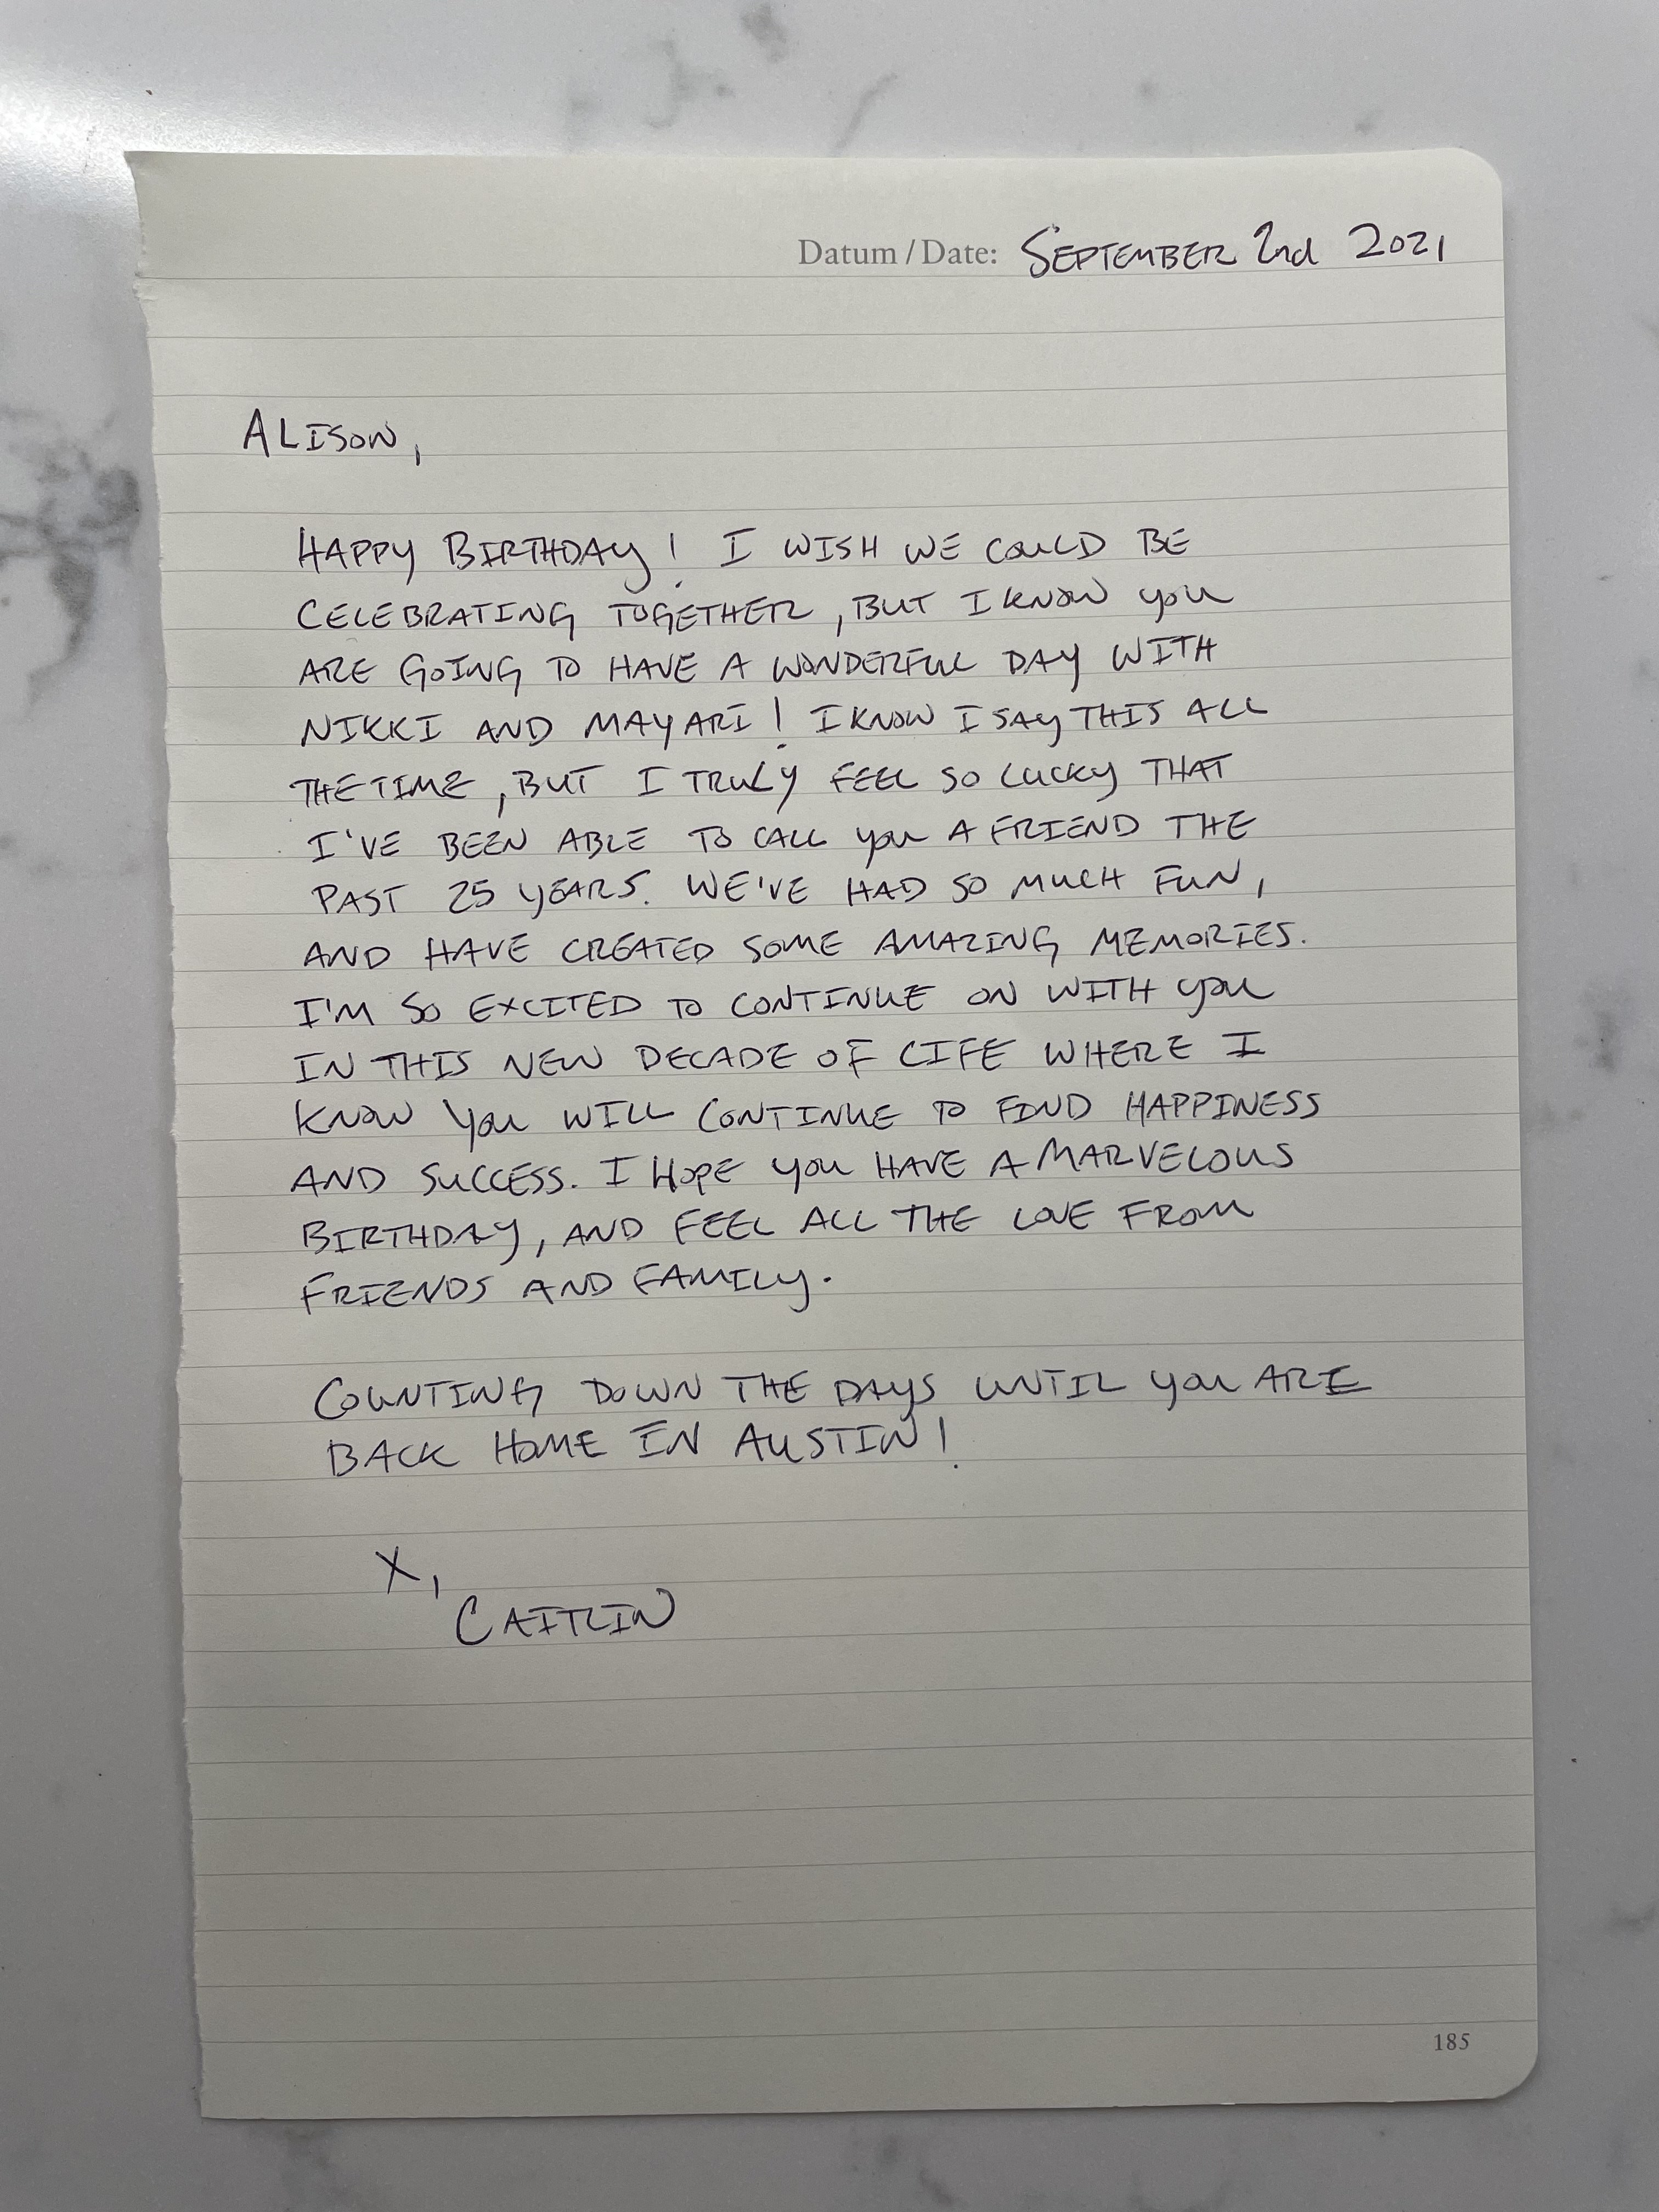 Datum / Date: SEPTEMBER 2nd 2021
ALISON,
HAPPY BIRTHDAY! I WISH WE COULD BE
CELEBRATING TOGETHER, BUT I KNOW YOU
ARE GOING TO HAVE A WONDERFUL DAY WITH
NIKKI AND MAYARI! I KNOW I SAY THIS ALL
THE TIME, BUT I TRULY FEEL SO LUCKY THAT
I'VE BEEN ABLE TO CALL YOU A FRIEND THE
PAST 25 YEARS. WE'VE HAD SO MUCH FUN,
AND HAVE CREATED SOME AMAZING MEMORIES.
I'M SO EXCITED TO CONTINUE ON WITH YOU
IN THIS NEW DECADE OF LIFE WHERE I
KNOW YOU WILL CONTINUE TO FIND HAPPINESS
AND SUCCESS. I HOPE YOU HAVE A MARVELOUS
BIRTHDAY, AND FEEL ALL THE LOVE FROM
FRIENDS AND FAMILY.
COUNTING DOWN THE DAYS UNTIL YOU ARE
BACK HOME IN AUSTIN!
X,
CAITLIN
185